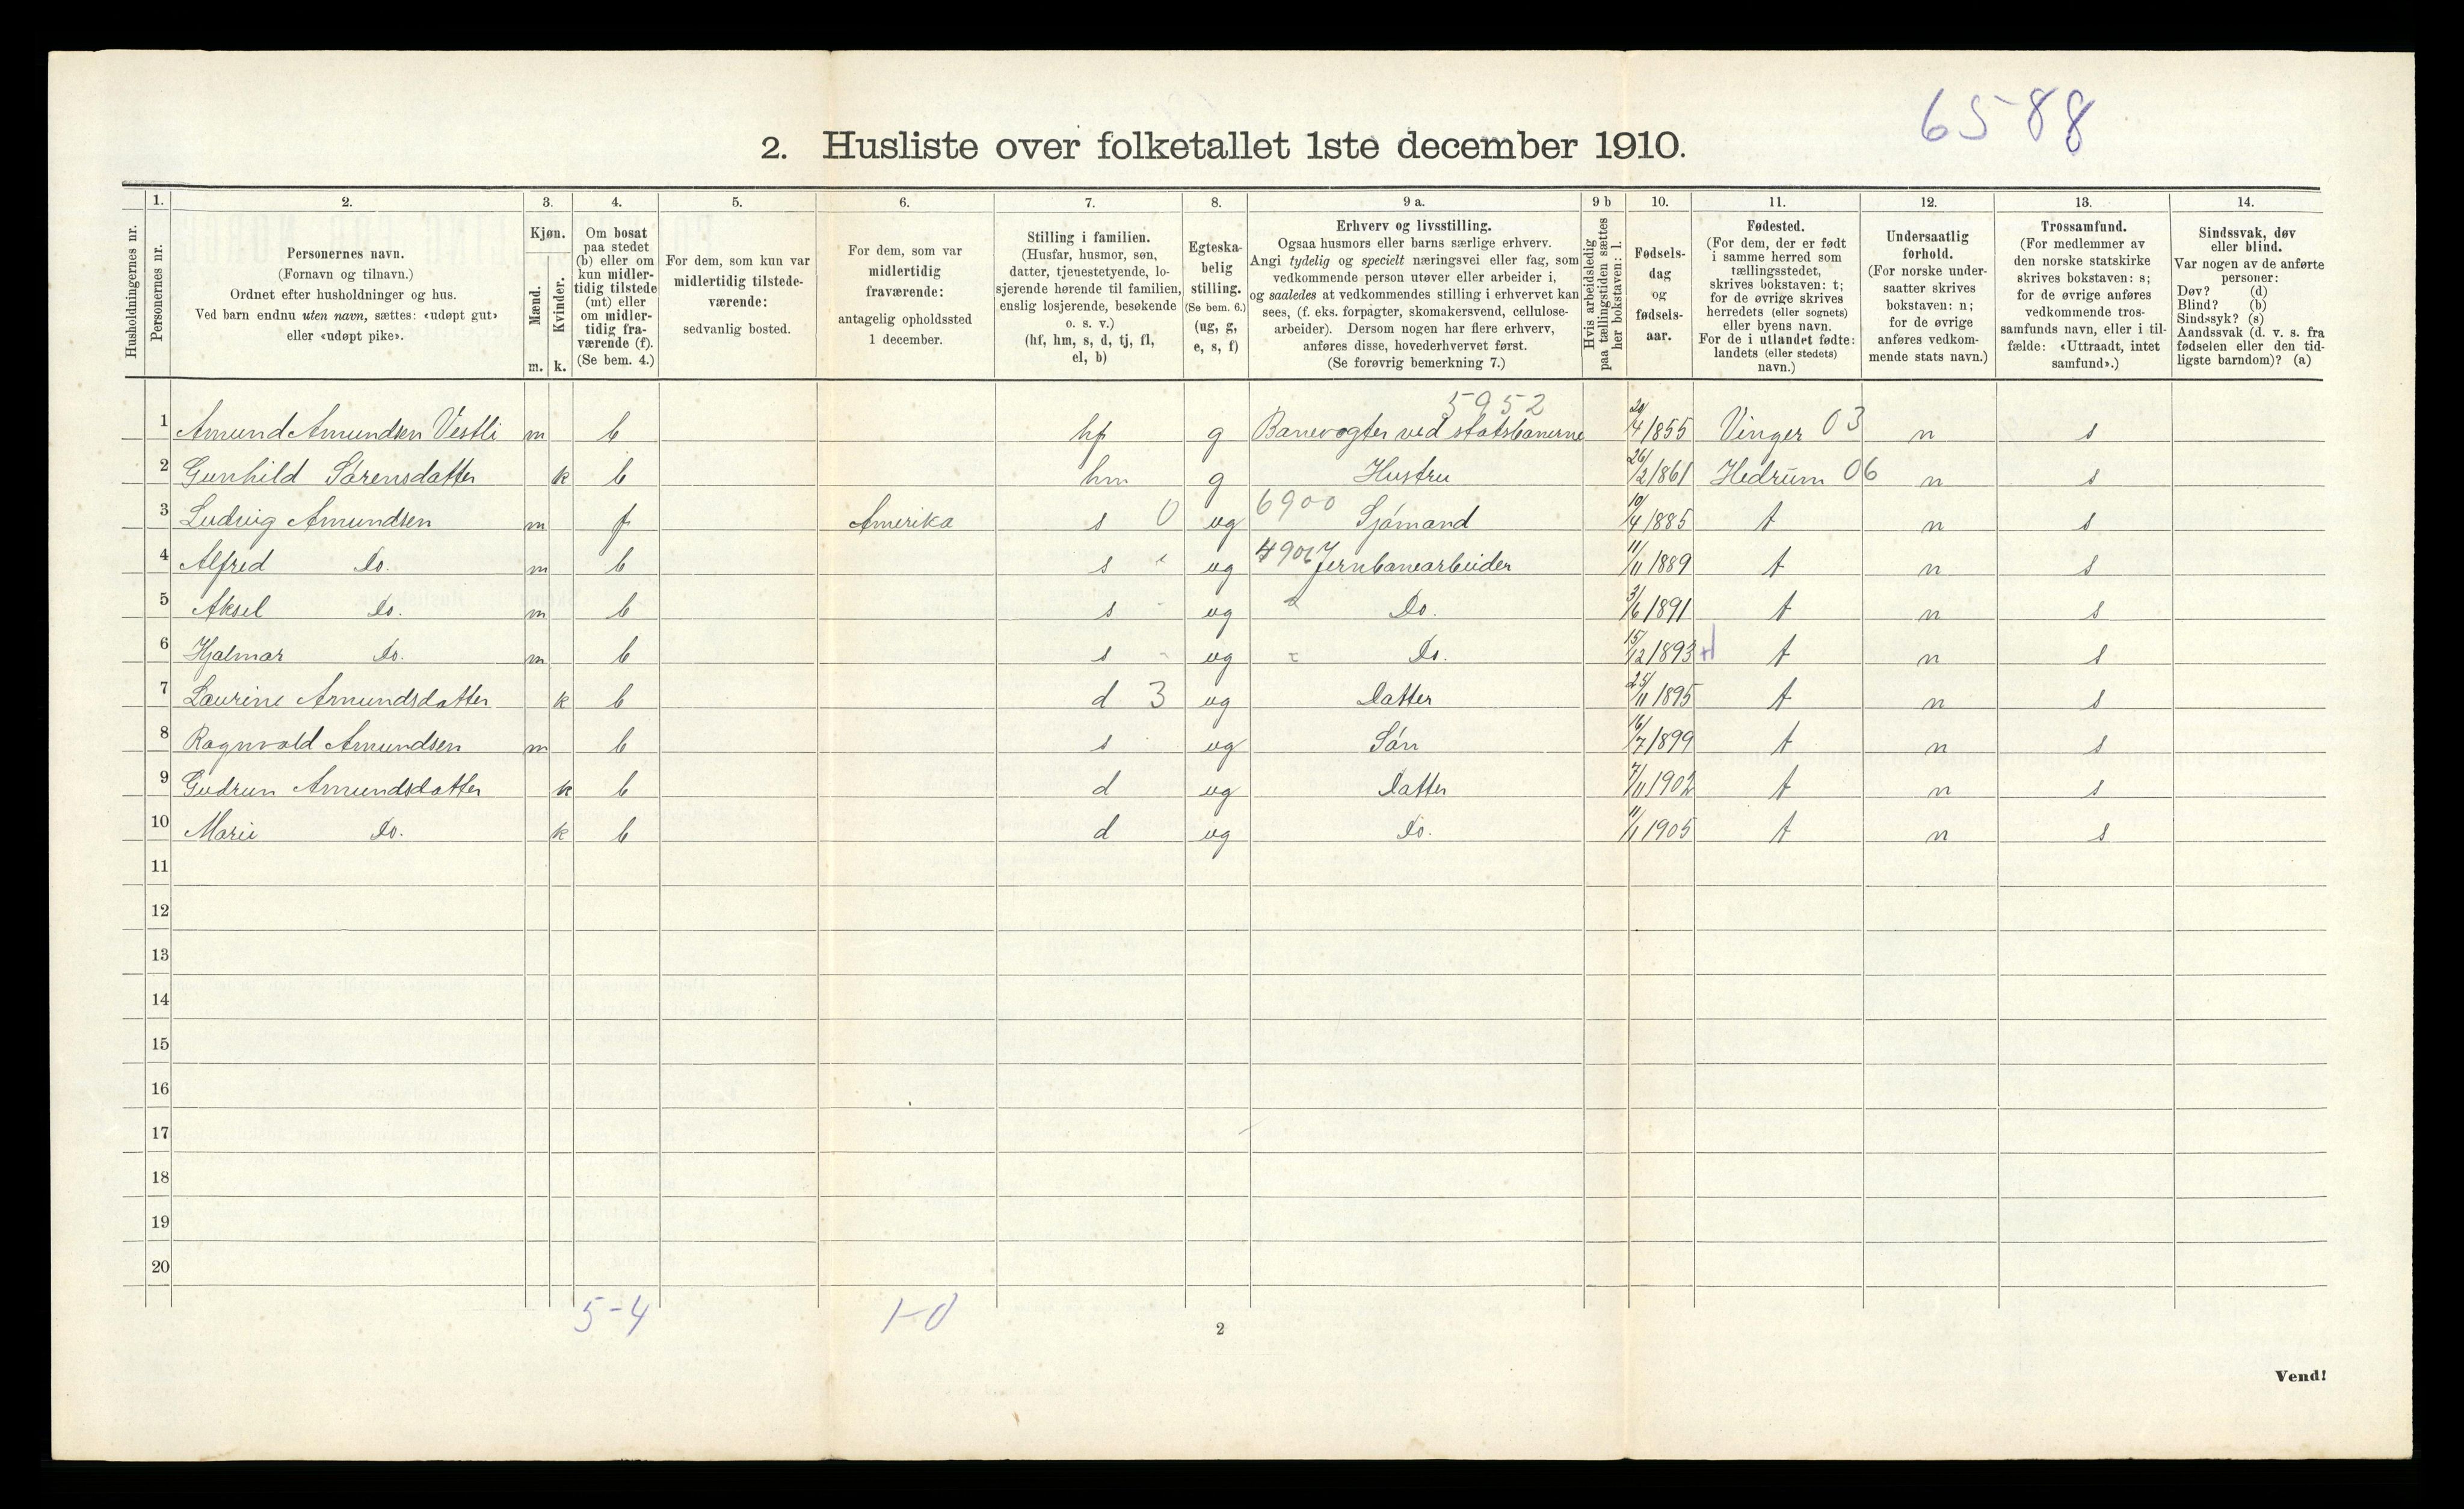 6588
2. Husliste over folketallet 1ste december 1910.
1. 2. 3. 4. 5. 6. 7. 8. 9 a. 9 b 10. 11. 12. 13. 14.
Husholdningernes nr.
Personernes nr.
Personernes navn.
(Fornavn og tilnavn.)
Ordnet efter husholdninger og hus.
Ved barn endnu uten navn, sættes: «udøpt gut»
eller «udøpt pike».
Kjøn.
Mænd.
m.
Kvinder.
k.
Om bosat
paa stedet
(b) eller om
kun midler-
tidig tilstede
(mt) eller
om midler-
tidig fra-
værende (f).
(Se bem. 4.)
For dem, som kun var
midlertidig tilstede-
værende:
sedvanlig bosted.
For dem, som var
midlertidig
fraværende:
antagelig opholdssted
1 december.
Stilling i familien.
(Husfar, husmor, søn,
datter, tjenestetyende, lo-
sjerende hørende til familien,
enslig losjerende, besøkende
o. s. v.)
(hf, hm, s, d, tj, fl,
el, b)
Egteska-
belig
stilling.
(Se bem. 6.)
(ug, g,
e, s, f)
Erhverv og livsstilling.
Ogsaa husmors eller barns særlige erhverv.
Angi tydelig og specielt næringsvei eller fag, som
vedkommende person utøver eller arbeider i,
og saaledes at vedkommendes stilling i erhvervet kan
sees, (f. eks. forpagter, skomakersvend, cellulose-
arbeider). Dersom nogen har flere erhverv,
anføres disse, hovederhvervet først.
(Se forøvrig bemerkning 7.)
Hvis arbeidsledig
paa tællingstiden sættes
her bokstaven: l.
Fødsels-
dag
og
fødsels-
aar.
Fødested.
(For dem, der er født
i samme herred som
tællingsstedet,
skrives bokstaven: t;
for de øvrige skrives
herredets (eller sognets)
eller byens navn.
For de i utlandet fødte:
landets (eller stedets)
navn.)
Undersaatlig
forhold.
(For norske under-
saatter skrives
bokstaven: n;
for de øvrige
anføres vedkom-
mende stats navn.)
Trossamfund.
(For medlemmer av
den norske statskirke
skrives bokstaven: s;
for de øvrige anføres
vedkommende tros-
samfunds navn, eller i til-
fælde: «Uttraadt, intet
samfund».)
Sindssvak, døv
eller blind.
Var nogen av de anførte
personer:
Døv? (d)
Blind? (b)
Sindssyk? (s)
Aandssvak (d. v. s. fra
fødselen eller den tid-
ligste barndom)? (a)
5952
1 Amund Amundsen Vestli m b hf g Banevogter ved statsbanerne 20/4 1855 Vinger 03 n s
2 Gunhild Sørensdatter k b hm g Hustru 26/2 1861 Hedrum 06 n s
3 Ludvig Amundsen m f Amerika s 0 ug 6900 Sjømand 10/4 1885 t n s
4 Alfred Do. m b s ug 4906 Jernbanearbeider 11/11 1889 t n s
5 Aksel Do. m b s ug Do. 3/6 1891 t n s
6 Hjalmar Do. m b s ug Do. 15/12 1893 t n s
7 Laurine Amundsdatter k b d 3 ug Datter 25/11 1895 t n s
8 Ragnvald Amundsen m b s ug Søn 16/7 1899 t n s
9 Gudrun Amundsdatter k b d ug Datter 7/11 1902 t n s
10 Marie Do. k b d ug Do. 11/1 1905 t n s
11
12
13
14
15
16
17
18
19
20
5-4 1-0
2
Vend!